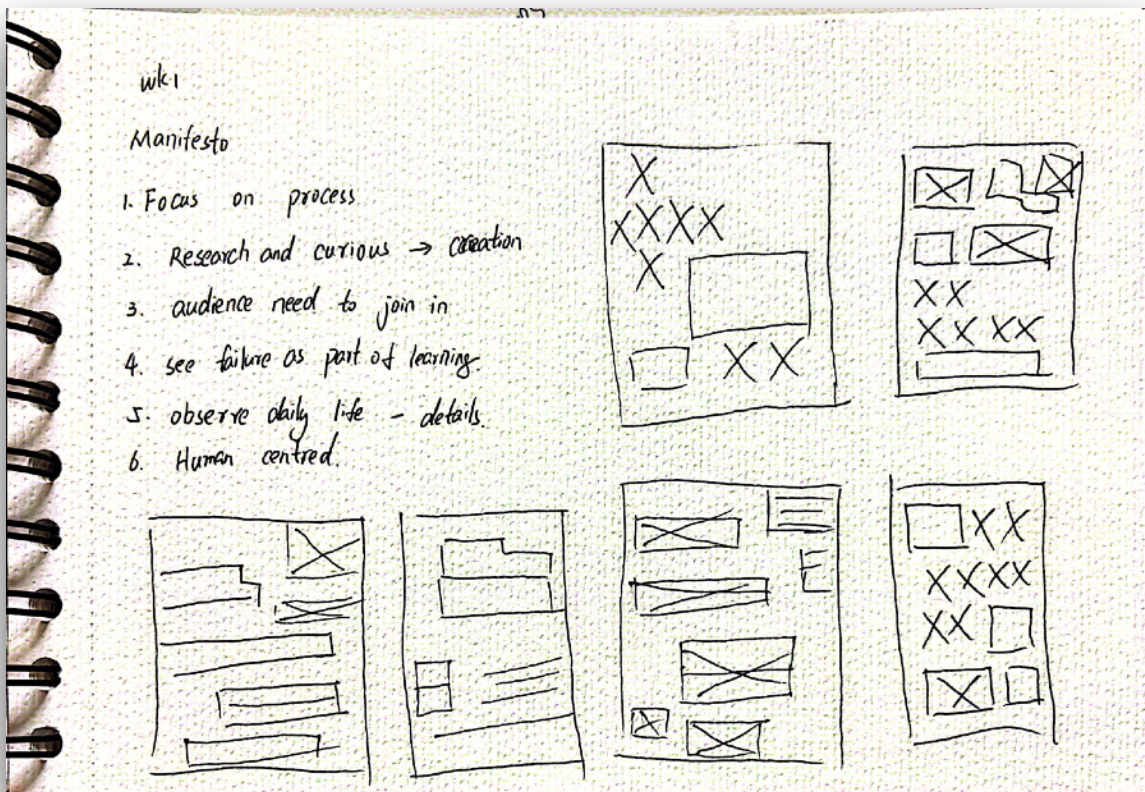 wk1
Manifesto
1. Focus on process
2. Research and curious → creation
3. audience need to join in
4. see failure as part of learning.
5. observe daily life - details.
6. Human centred.